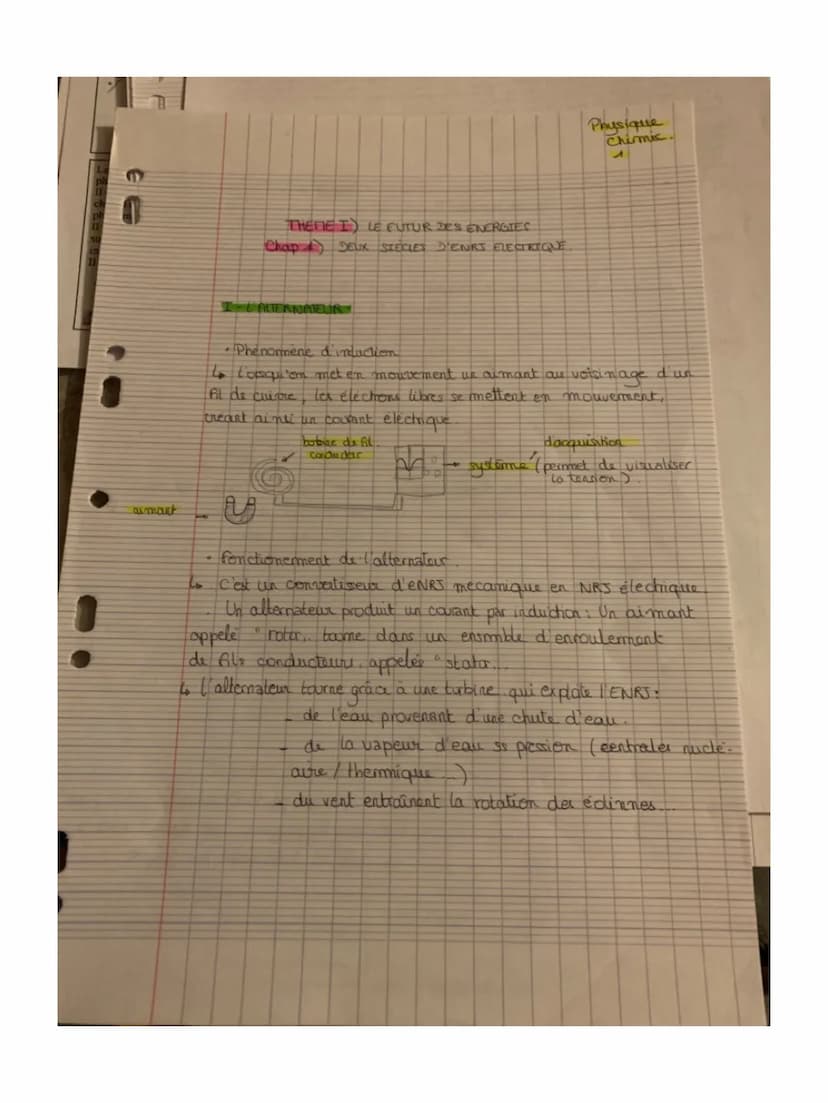 Physique
Chimie.
1
THEME I) LE FUTUR DES ENERGIES
Chap 1) DEUX SIÈCLES D'ENRJ ELECTRIQUE
I - L'ALTERNATEUR
• Phénomène d'induction
↳ Lorsqu'on met en mouvement un aimant au voisinage d'un
fil de cuivre, les électrons libres se mettent en mouvement,
créant ainsi un courant électrique.
bobine de fil
conducteur
d'acquisition
système (permet de visualiser
la tension).
aimant
• Fonctionement de l'alternateur
↳ C'est un convertisseur d'ENRJ mécanique en NRJ électrique.
. Un alternateur produit un courant par induction : Un aimant
appelé "rotor" tourne dans un ensmble d'enroulement
de fils conducteurs, appelés "stator"..
↳ L'alternateur tourne grâce à une turbine qui exploite l'ENRJ :
- de l'eau provenant d'une chute d'eau.
- de la vapeur d'eau ss pression (centrales nuclé-
aire / thermique ...)
- du vent entraînent la rotation des éoliennes...